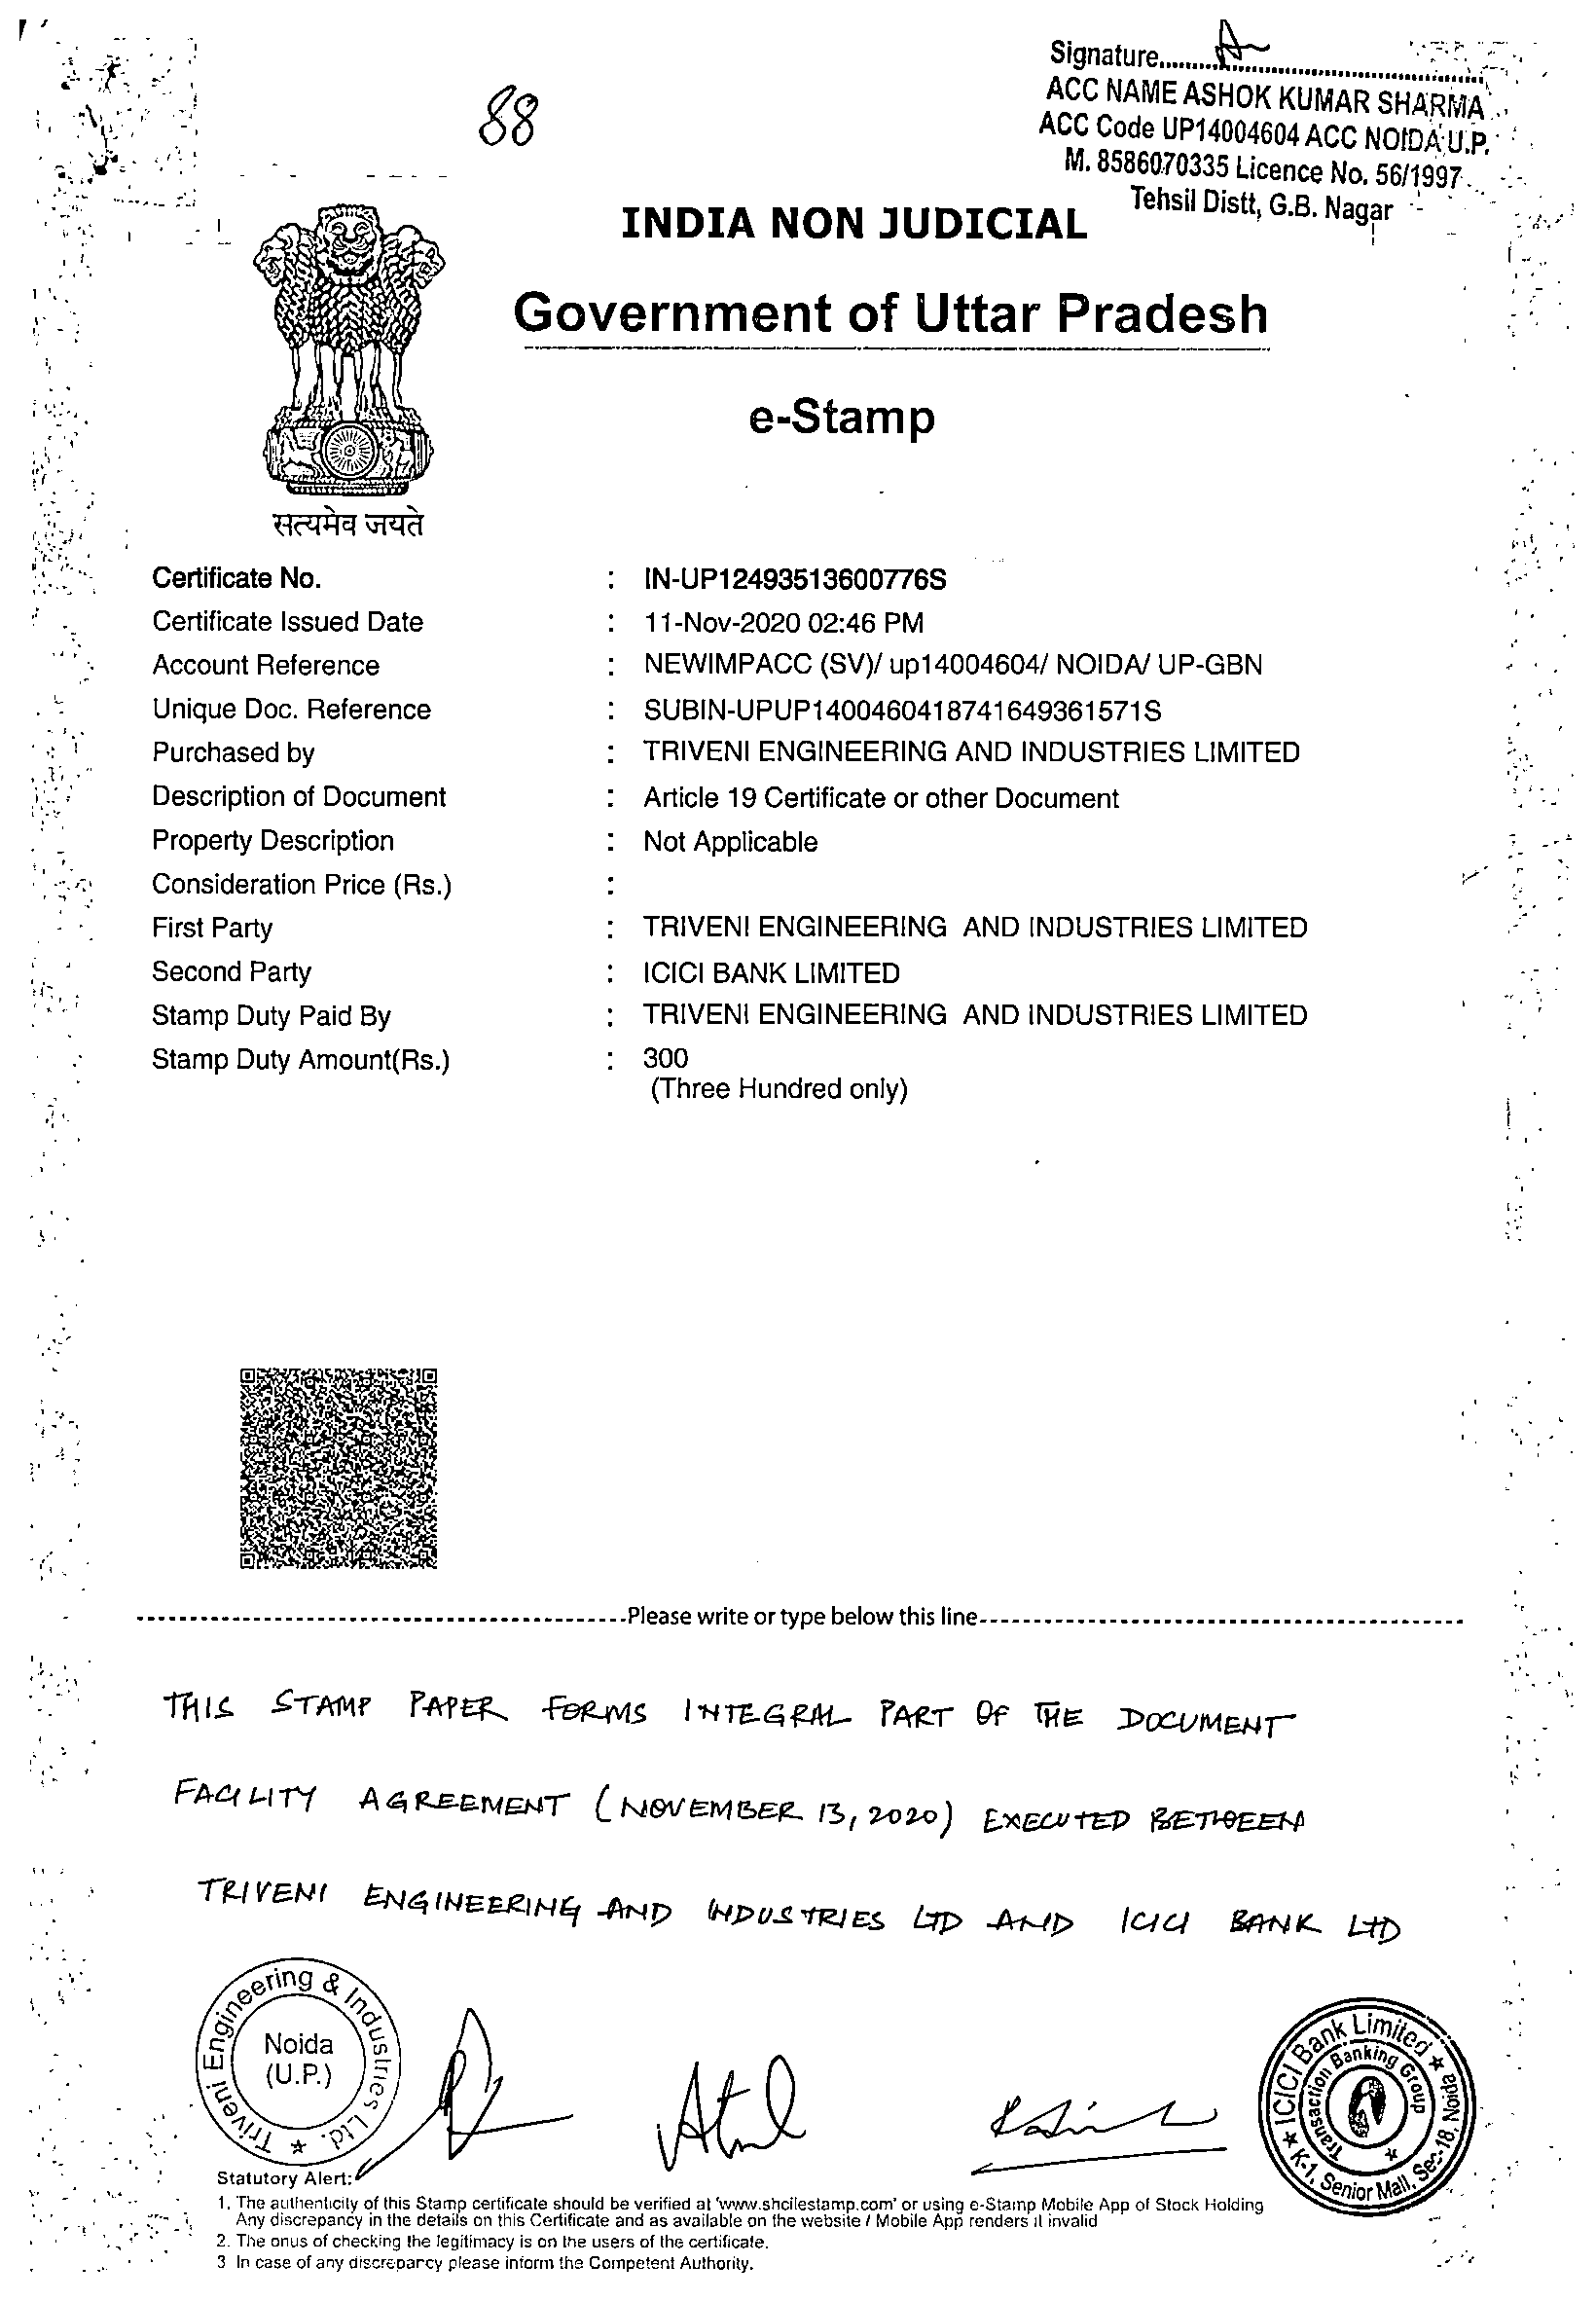 Signature
ACC NAME ASHOK KUMAR SHARMA
ACC Code UP14004604 ACC NOIDA U.P.
M. 8586070335 Licence No. 56/1997
Tehsil Distt, G.B. Nagar
88
INDIA NON JUDICIAL
Government of Uttar Pradesh
e-Stamp
सत्यमेव जयते
Certificate No. : IN-UP12493513600776S
Certificate Issued Date : 11-Nov-2020 02:46 PM
Account Reference : NEWIMPACC (SV)/ up14004604/ NOIDA/ UP-GBN
Unique Doc. Reference : SUBIN-UPUP1400460418741649361571S
Purchased by : TRIVENI ENGINEERING AND INDUSTRIES LIMITED
Description of Document : Article 19 Certificate or other Document
Property Description : Not Applicable
Consideration Price (Rs.) :
First Party : TRIVENI ENGINEERING AND INDUSTRIES LIMITED
Second Party : ICICI BANK LIMITED
Stamp Duty Paid By : TRIVENI ENGINEERING AND INDUSTRIES LIMITED
Stamp Duty Amount(Rs.) : 300
(Three Hundred only)
Please write or type below this line
THIS STAMP PAPER FORMS INTEGRAL PART OF THE DOCUMENT
FACILITY AGREEMENT (NOVEMBER 13, 2020) EXECUTED BETWEEN
TRIVENI ENGINEERING AND INDUSTRIES LTD AND ICICI BANK LTD
Triveni Engineering & Industries Ltd.
Noida
(U.P.)
Atul
ICICI Bank Limited
K-1, Senior Mall, Sec-18, Noida
Transaction Banking Group
Statutory Alert:
1. The authenticity of this Stamp certificate should be verified at 'www.shcilestamp.com' or using e-Stamp Mobile App of Stock Holding
Any discrepancy in the details on this Certificate and as available on the website / Mobile App renders it invalid
2. The onus of checking the legitimacy is on the users of the certificate.
3 In case of any discreparcy please inform the Competent Authority.